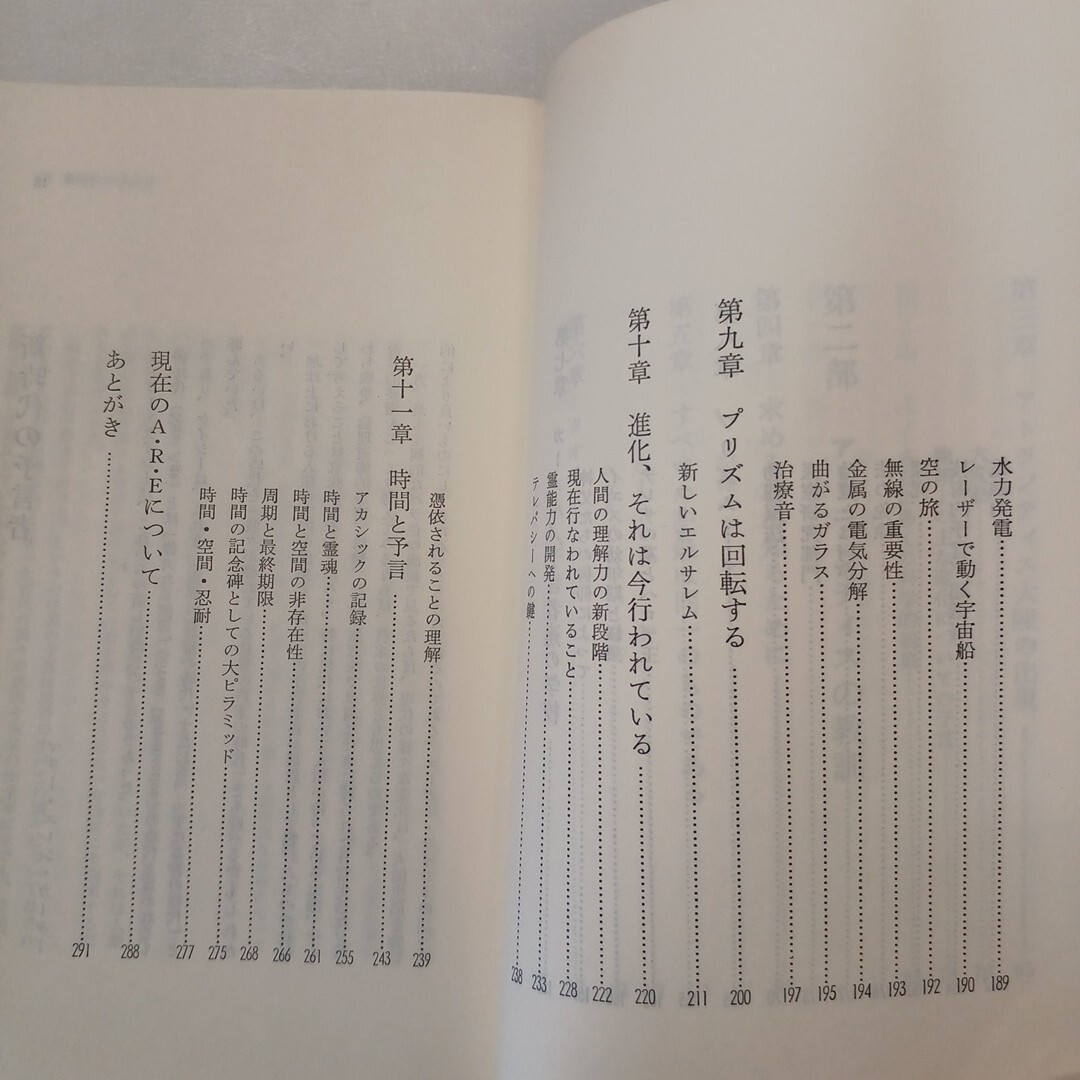 水力発電 189
レーザーで動く宇宙船 190
空の旅 192
無線の重要性 193
金属の電気分解 194
曲がるガラス 195
治療音 197
第九章 プリズムは回転する 200
新しいエルサレム 211
第十章 進化、それは今行われている 220
人間の理解力の新段階 222
現在行なわれていること 228
霊能力の開発 233
テレパシーへの鍵 238
憑依されることの理解 239
第十一章 時間と予言 243
アカシックの記録 255
時間と霊魂 261
時間と空間の非存在性 266
周期と最終期限 268
時間の記念碑としての大ピラミッド 275
時間・空間・忍耐 277
現在のA・R・Eについて 288
あとがき 291